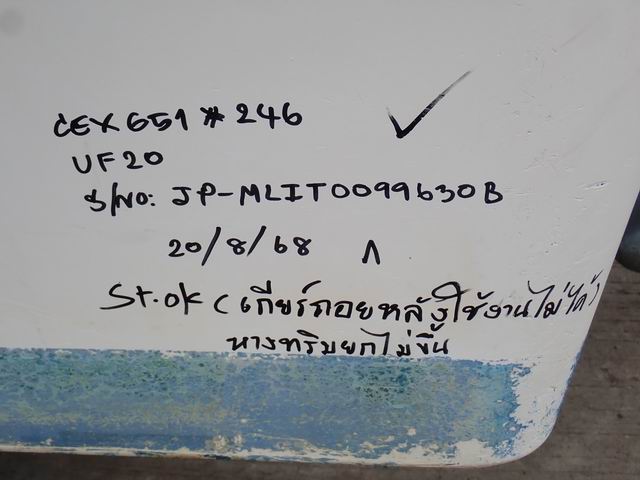 CEX651 # 246 ✓
UF20
S/NO: JP-MLIT0099630B
20/8/68 ก
St.ok (เกียร์ถอยหลังใช้งานไม่ได้)
หางทริมยกไม่ขึ้น